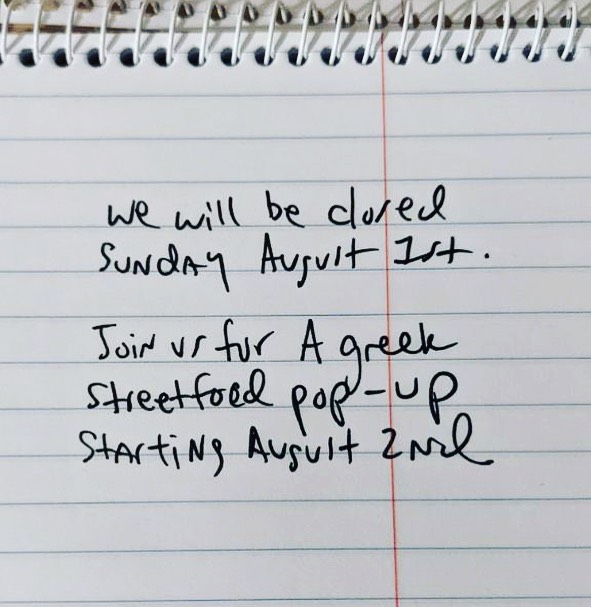 We will be closed
Sunday August 1st.
Join us for A greek
streetfood pop-up
Starting August 2nd